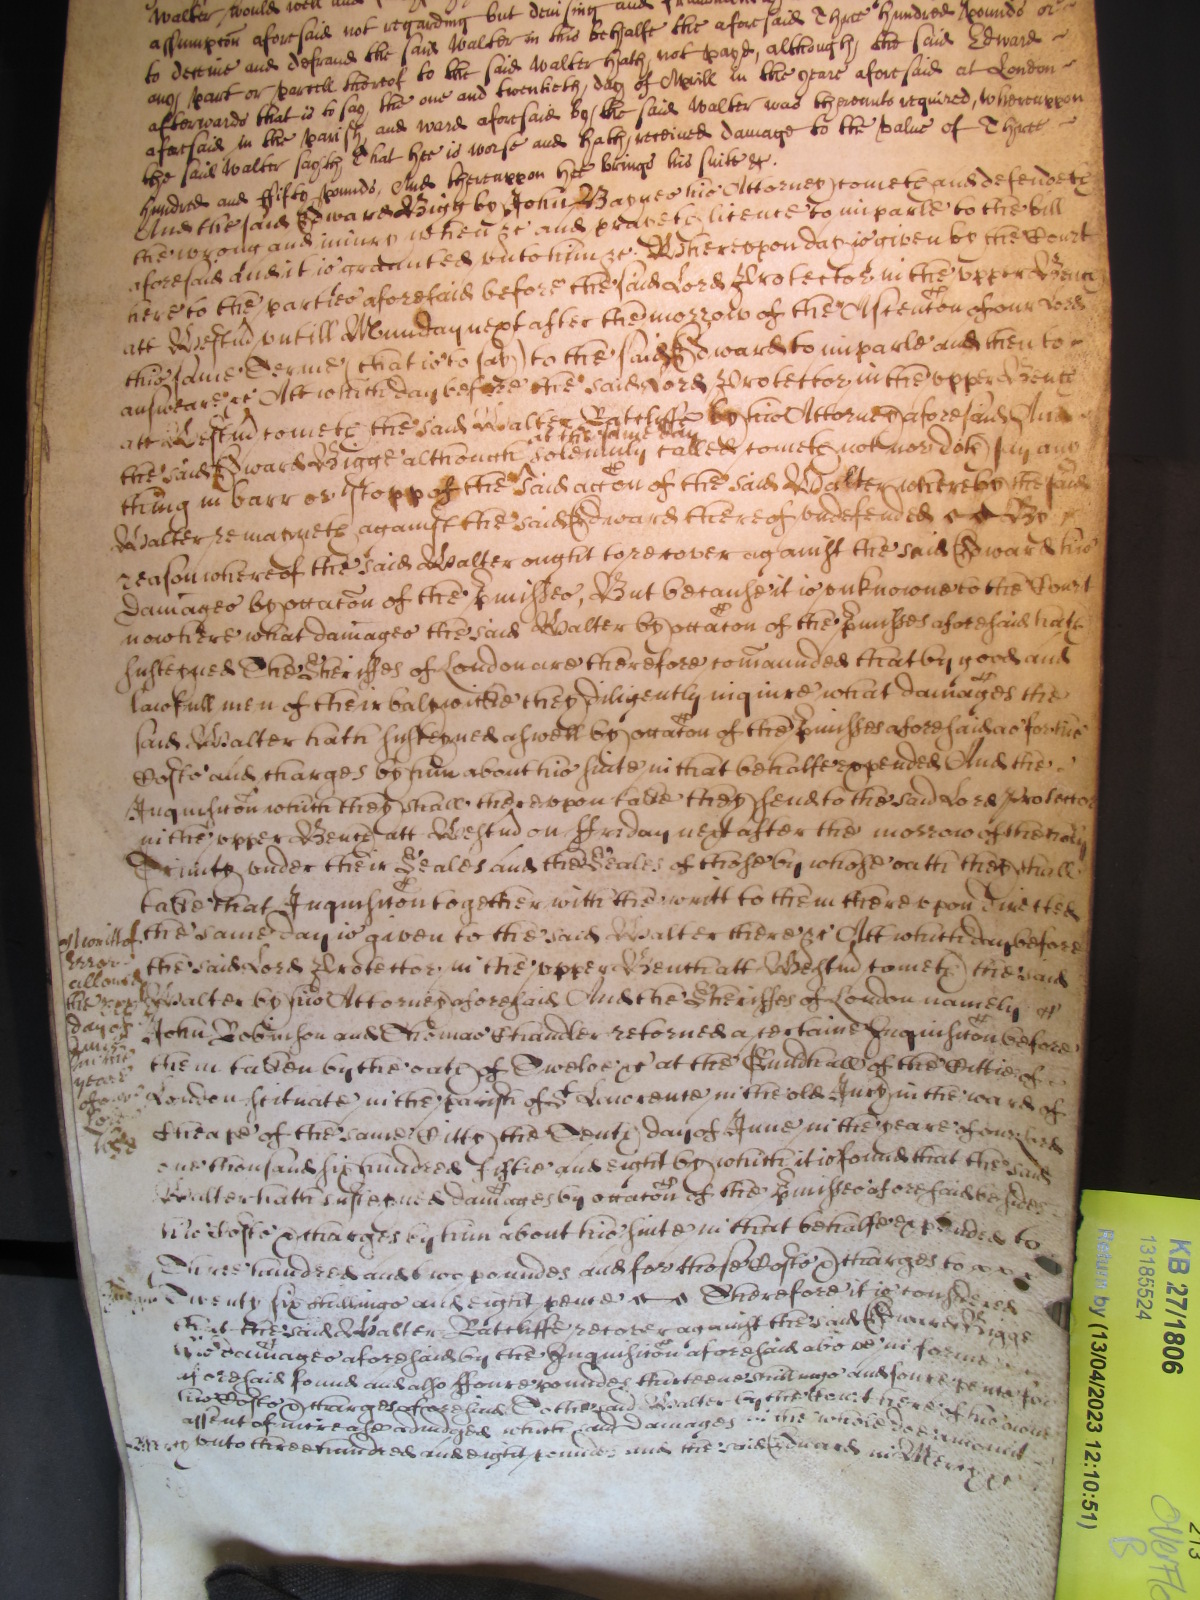 Walter, would well and
assumpcon aforesaid not regarding but devising and
to deceive and defraud the said Walter in this behalfe the aforesaid Three hundred pounds or
any part or parcell thereof to the said Walter hath not payd, although the said Edward
afterwards that is to say the one and twentieth day of Aprill in the yeare aforesaid at London
aforesaid in the parish and ward aforesaid by the said Walter was thereunto required, whereuppon
the said Walter sayth that hee is worse and hath received damage to the value of Three
hundred and ffifty pounds. And thereuppon hee brings his suite &c.
And the said Edward Bigg by John Baynes his Attorney cometh and defendeth
the wrong and iniury when &c and prayeth licence to imparle to the bill
aforesaid And it is graunted unto him &c. Whereupon day is given by the Court
here to the parties aforesaid before the said Lord Protector in the upper Bench
att Westm untill Munday next after the morrow of the Ascencon of our Lord
this same Terme (that is to say) to the said Edward to imparle and then to
answeare &c Att which day before the said Lord Protector in the upper Bench
att Westm cometh the said Walter Ratcliffe by his Attorney aforesaid And
at the same day
the said Edward Bigge although solemnly called cometh not nor doth say any
thing in barr or stopp of the said accon of the said Walter whereby the said
Walter remayneth against the said Edward thereof undefended By
reason whereof the said Walter ought to recover against the said Edward his
damages by occacon of the pmisses, But because it is unknowne to the Court
now here what damages the said Walter by occacon of the pmisses aforesaid hath
susteyned The Sheriffes of London are therefore comaunded that by good and
lawfull men of their baylywicke they diligently inquire what damages the
said Walter hath susteyned aswell by occacon of the pmisses aforesaid as for his
Costs and charges by him about his suite in that behalfe expended And the
Inquisicon which they shall thereupon take they send to the said Lord Protector
in the upper Bench att Westm on ffriday next after the morrow of the holy
Trinity under their Seales and the Seales of those by whose oath they shall
take that Inquisicon together with the writt to them thereupon directed
the same day is given to the said Walter there &c Att which day before
the said Lord Protector in the upper Bench att Westm cometh the said
Walter by his Attorney aforesaid And the Sheriffes of London namely
John Robinson and Thomas Chandler retorned a certaine Inquisicon before
them taken by the oath of Twelve &c at the Guildhall of the Cittie of
London scituate in the parish of St Laurence in the old Jury in the ward of
Cheape of the same Citty the Tenth day of June in the yeare of our Lord
one thousand six hundred fiftie and eight by which it is found that the said
Walter hath susteyned damages by occacon of the pmisses aforesaid besides
his Costs & charges by him about his suite in that behalfe expended to
Three hundred and two poundes and for those Costs & charges to
Twenty six shillings and eight pence Therefore it is considered
that the said Walter Ratcliffe recover against the said Edward Bigge
his damages aforesaid by the Inquisicon aforesaid above in forme
aforesaid found and also ffoure poundes thirteene shillings and foure pence for
his Costs & charges aforesaid To the said Walter by the Court here of his owne
assent of increase adiudged which said damages in the whole doe amount
unto three hundred and eight poundes and the said Edward in Mercy &c
A writt of
Error
allowed
the
day of
June
in the
yeare
of our
Lord
1658
Mercy
KB 27/1806
13185524
Return by (13/04/2023 12:10:51)
213